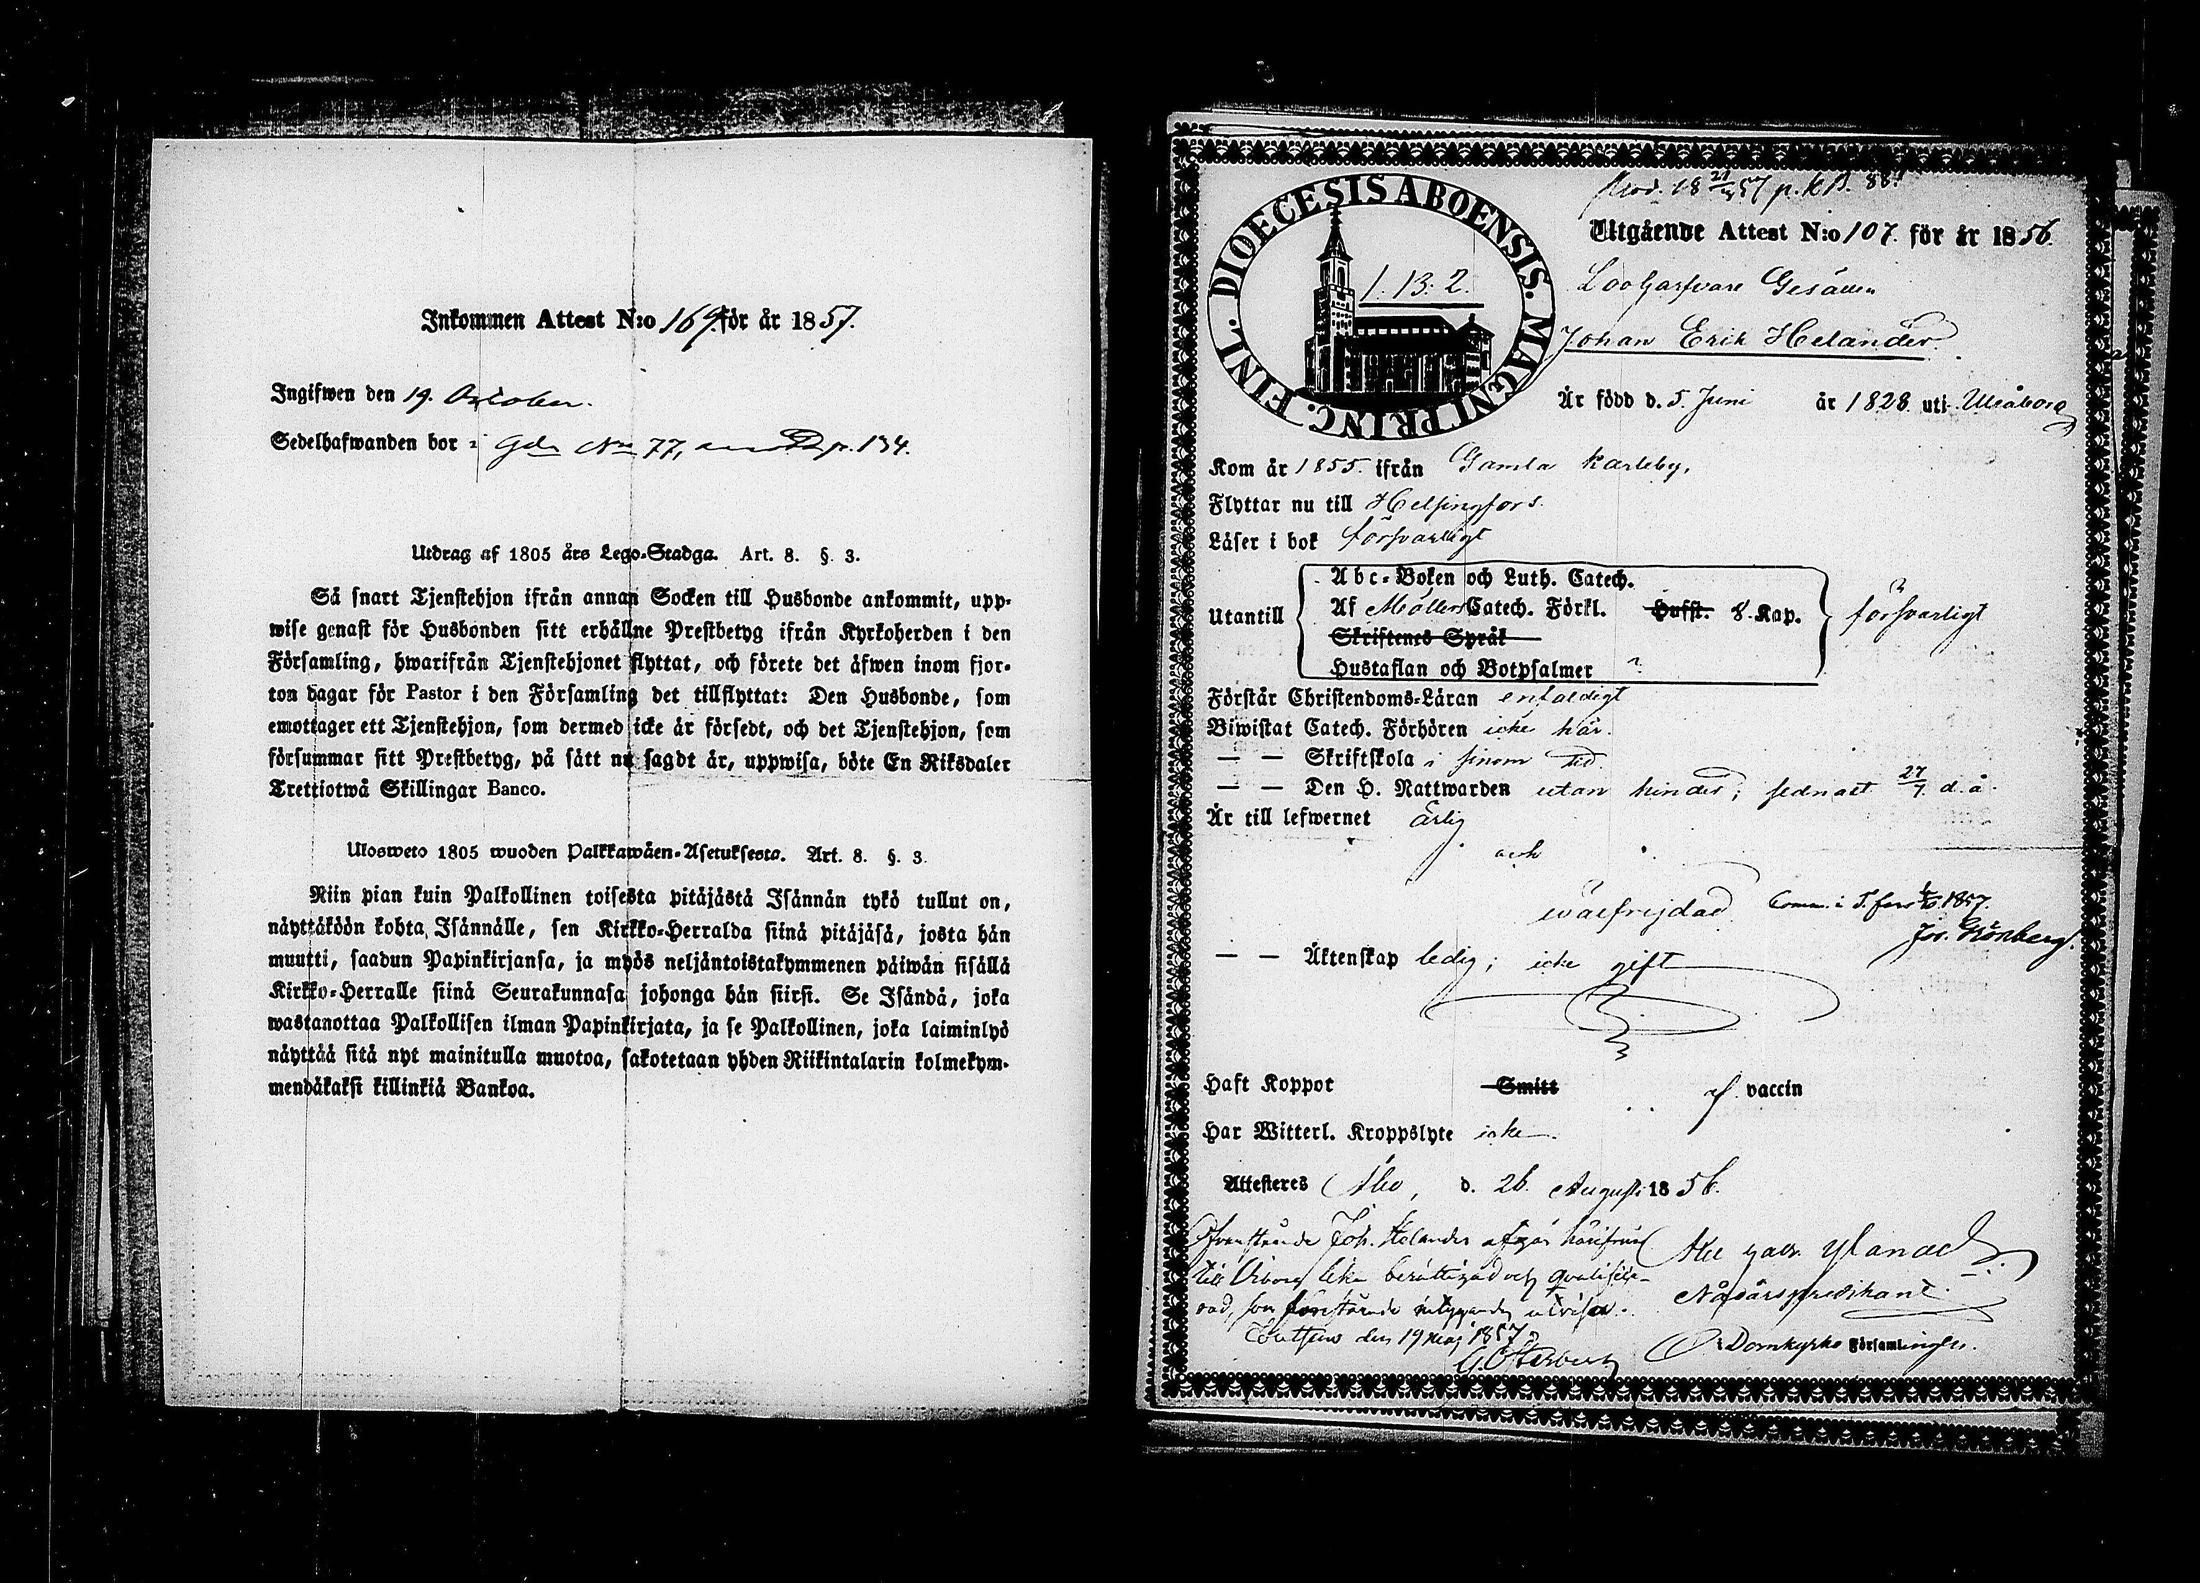 Inkommen Attest N:o 169 för år 1857.
Ingifwen den 19. October.
Sedelhafwanden bor i Gdn No 77, p. 134.
Utdrag af 1805 års Lego-Stadga. Art. 8. §. 3.
Så snart Tjenstehjon ifrån annan Socken till Husbonde ankommit, upp-
wise genast för Husbonden sitt erhållne Prestbetyg ifrån Kyrkoherden i den
Församling, hwarifrån Tjenstehjonet flyttat, och förete det äfwen inom fjor-
ton dagar för Pastor i den Församling det tillflyttat: Den Husbonde, som
emottager ett Tjenstehjon, som dermed icke är försedt, och det Tjenstehjon, som
försummar sitt Prestbetyg, på sätt nu sagdt är, uppwisa, böte En Riksdaler
Trettiotwå Skillingar Banco.
Ulosweto 1805 wuoden Palkkawäen-Asetuksesta. Art. 8. §. 3.
Niin pian kuin Palkollinen toisesta pitäjästä Isännän tykö tullut on,
näyttäköön kohta Isännälle, sen Kirkko-Herralda siinä pitäjäsä, josta hän
muutti, saadun Papinkirjansa, ja myös neljäntoistakymmenen päiwän sisällä
Kirkko-Herralle siinä Seurakunnasa johonga hän siirsi. Se Isändä, joka
wastanottaa Palkollisen ilman Papinkirjata, ja se Palkollinen, joka laiminlyö
näyttää sitä nyt mainitulla muotoa, sakotetaan yhden Riikintalarin kolmekym-
mendäkaksi killinkiä Bankoa.
DIOECESIS ABOENSIS. MAGNI PRINC. FINL.
1. 13. 2.
Utgående Attest N:o 107. för år 1856.
Gesällen
Johan Erik Helander
Är född d. 5. Juni år 1828. uti Uleåborg
Kom år 1855. ifrån Gamla Karleby.
Flyttar nu till Helsingfors.
Läser i bok försvarligt
Utantill
Abc-Boken och Luth. Catech.
Af Möllers Catech. Förkl. Hufst. 8. Kap.
Skriftenes Språk
Hustaflan och Botpsalmer ?
försvarligt
Förstår Christendoms-Läran enfaldigt
Biwistat Catech. Förhören icke här.
— — Skriftskola i sinom tid.
— — Den H. Nattwarden utan hinder; sednast 27/7. d. å.
Är till lefwernet Ärlig
och
wälfrejdad.
Comm. i 1857.
— — Äktenskap ledig; icke gift
Haft Koppor Smitt af vaccin
Har Witterl. Kroppslyte icke.
Attesteres Åbo, d. 26. Augusti 1856.
Ofvanstående Joh. Helander afgår härifrån
till Viborg lika berättigad och qvalifice-
rad, som utvisa.
den 19 Maj 1857
Nådårspredikant.
Domkyrko Församlingen.